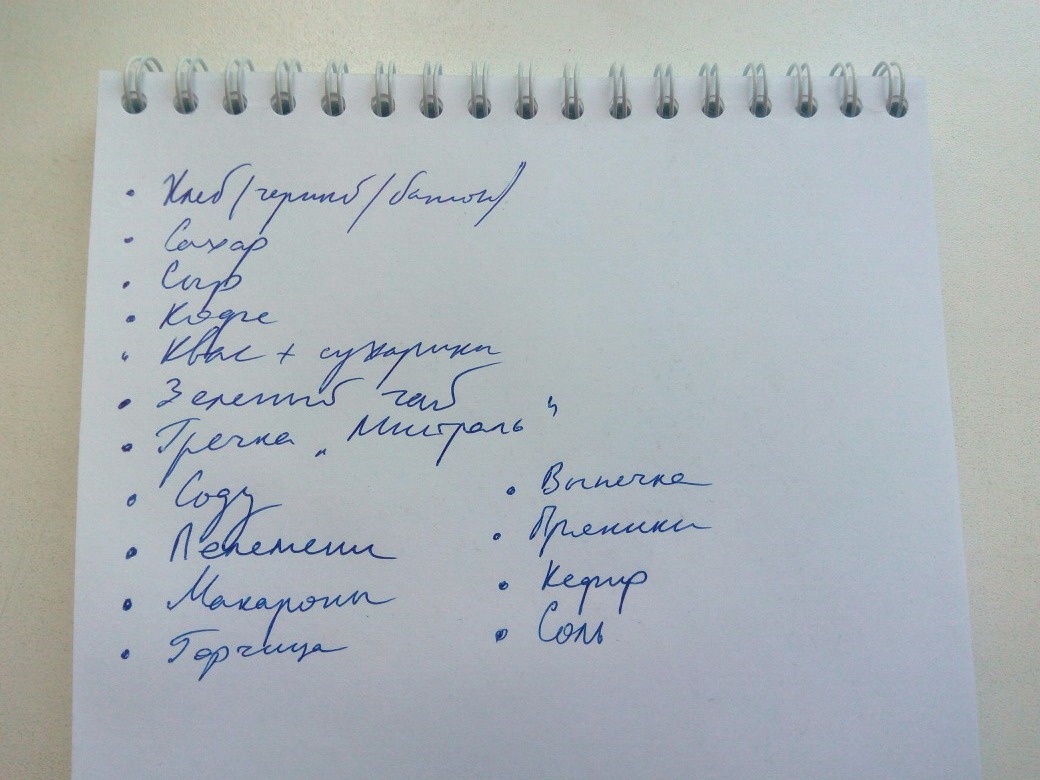 • Хлеб (черный/батон)
• Сахар
• Сыр
• Кофе
• Квас + сухарики
• Зеленый чай
• Гречка „Мистраль"
• Соду
• Пелемени
• Макароны
• Горчица
• Выпечка
• Пряники
• Кефир
• Соль